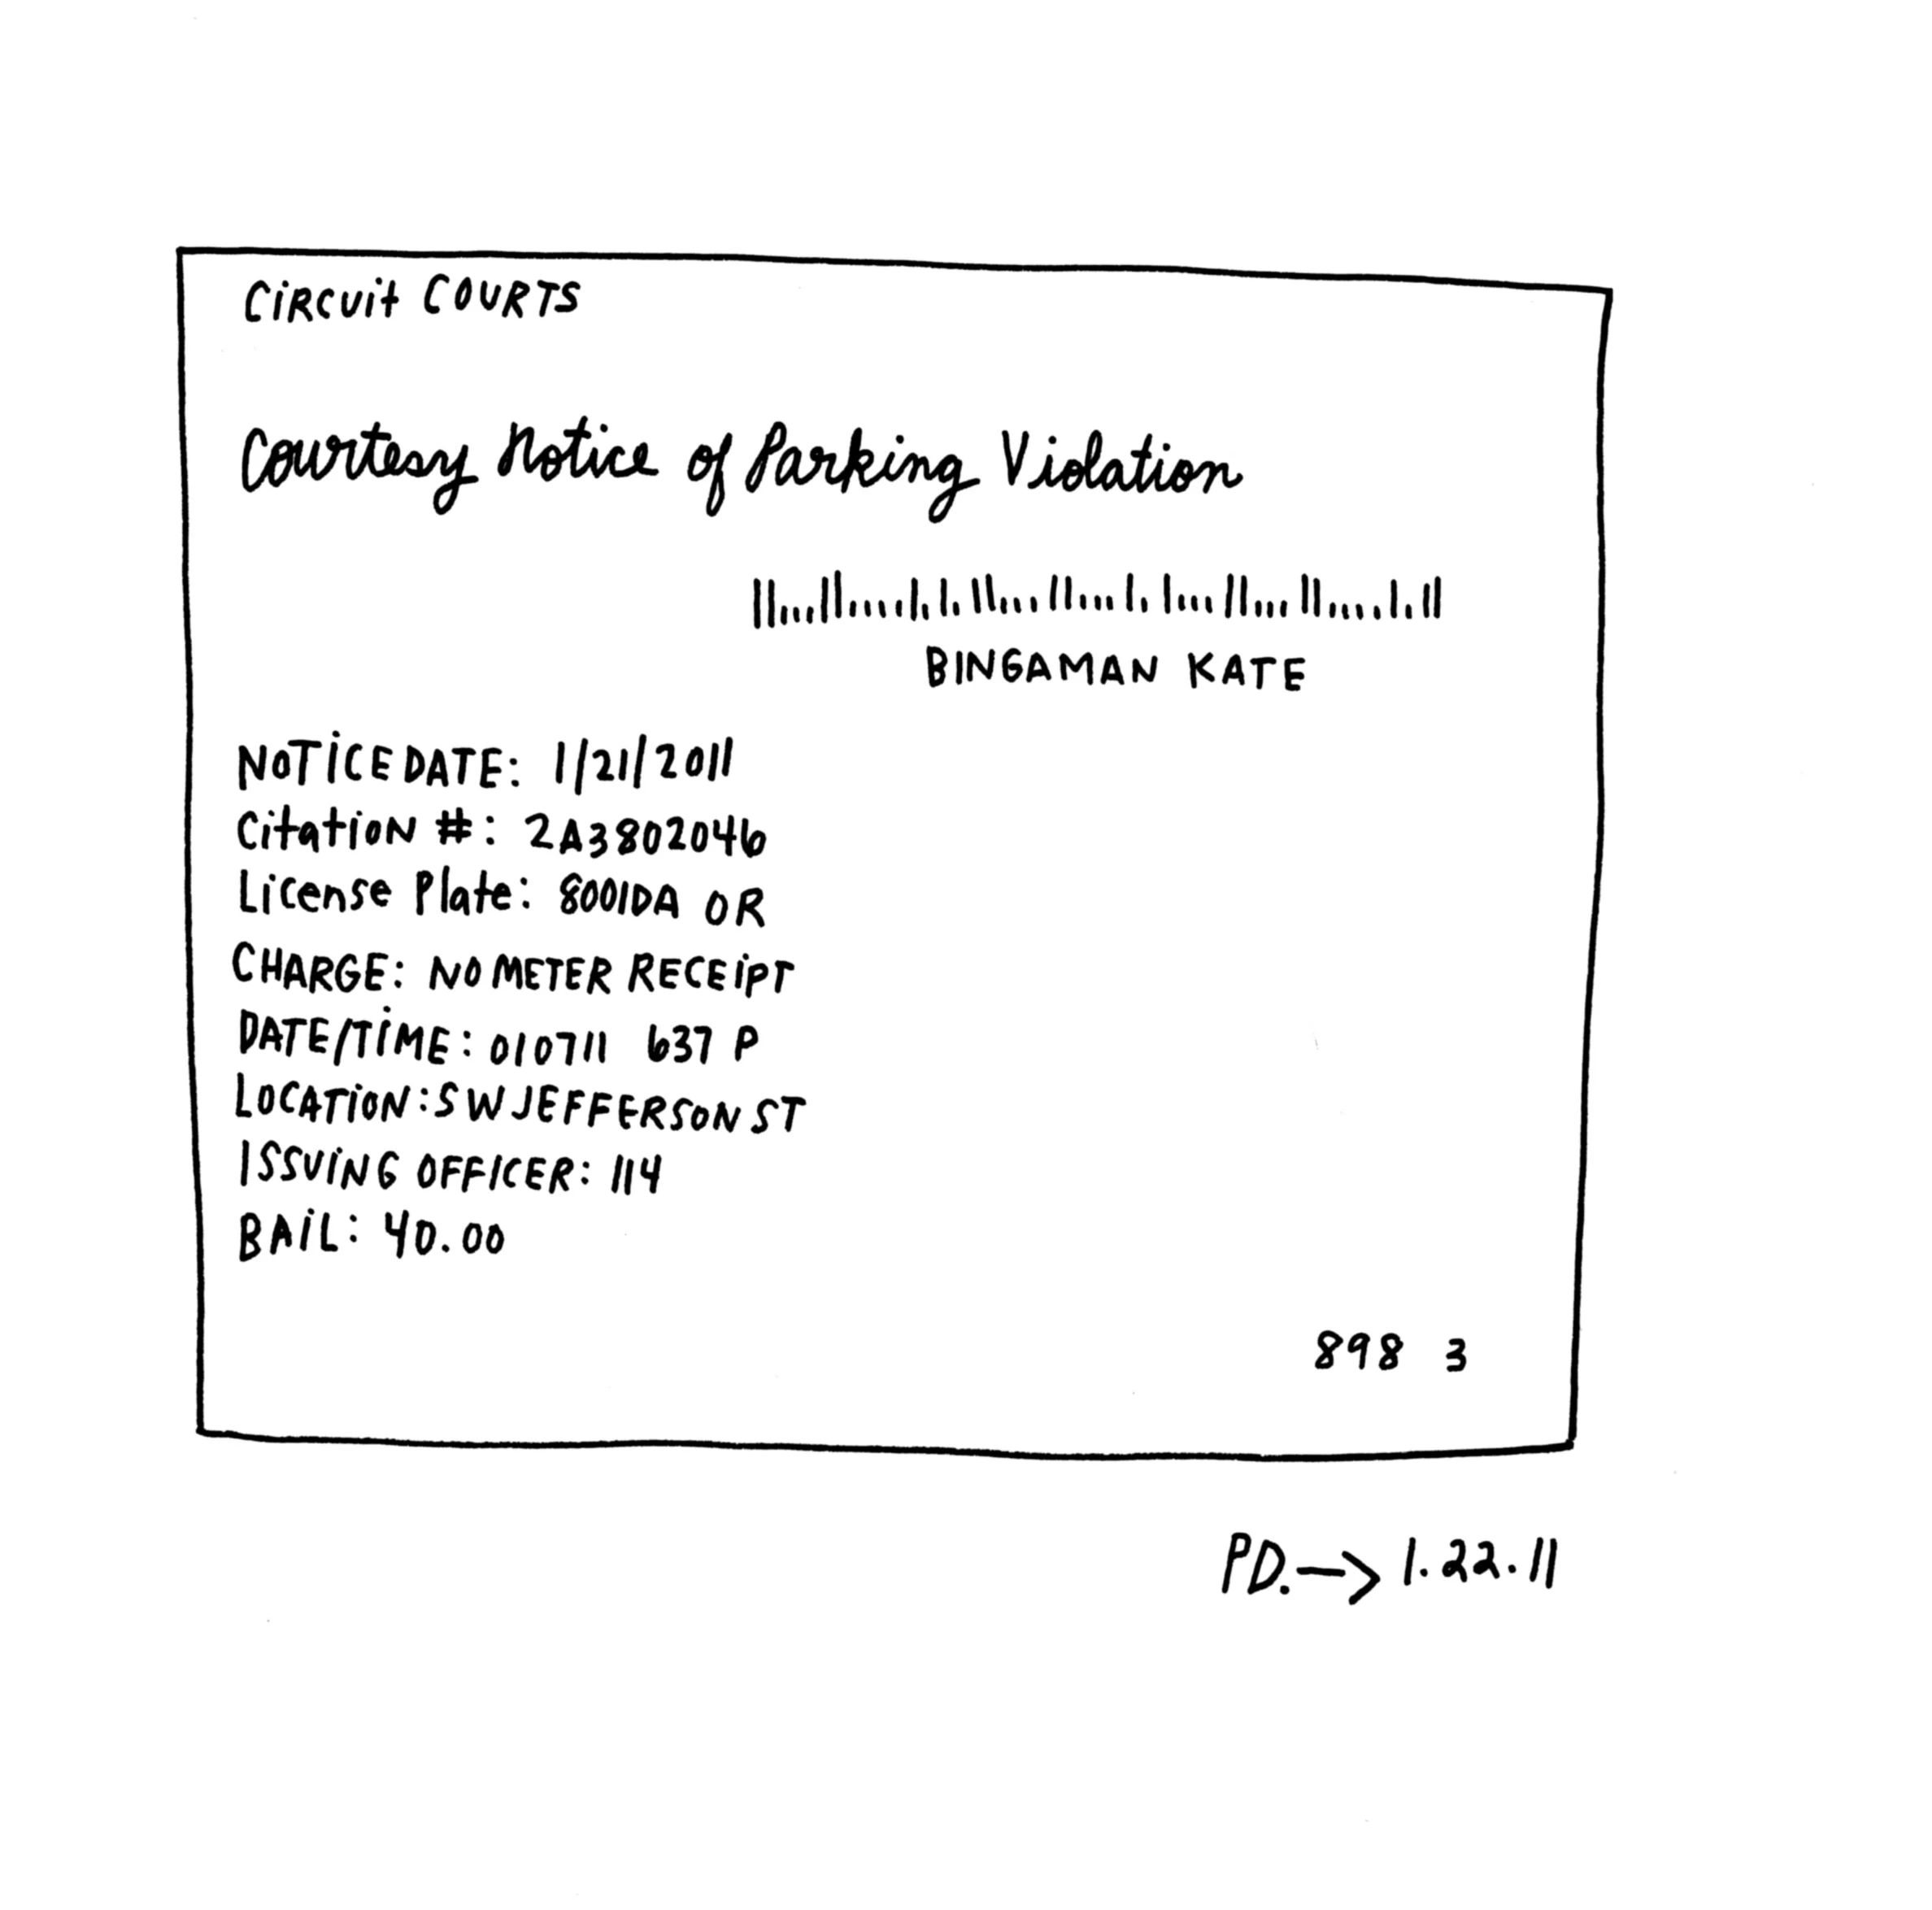 CiRCUit COURTS
Courtesy Notice of Parking Violation
BINGAMAN KATE
NOTiCE DATE: 1/21/2011
Citation #: 2A3802046
License Plate: 8001DA OR
CHARGE: NO METER RECEiPT
DATE/TiME: 010711 637 P
LOCATiON: SW JEFFERSON ST
ISSUiNG OFFICER: 114
BAiL: 40.00
898 3
PD. —> 1.22.11